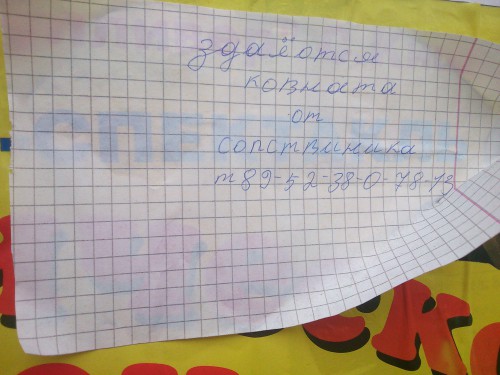 здаётся
ковната
от
сопственика
т 89-52-38-0-78-13